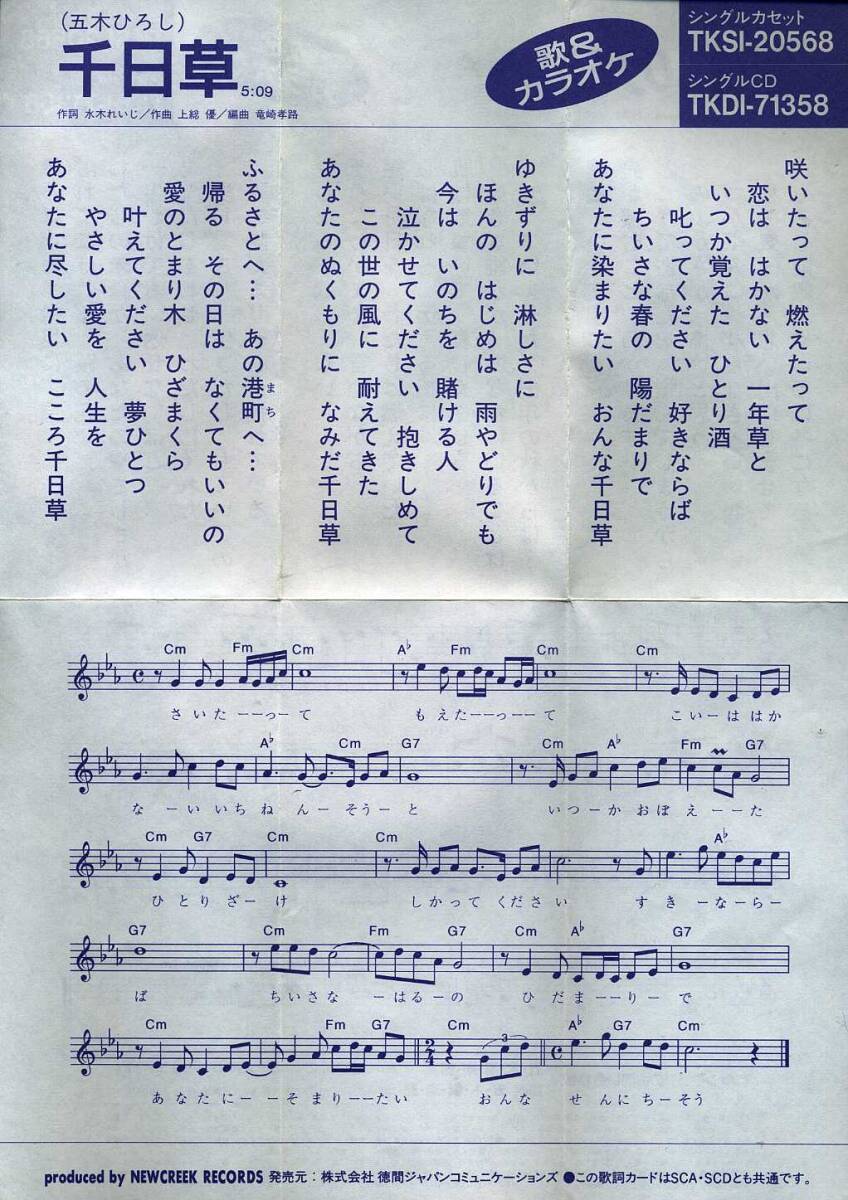 (五木ひろし)
千日草 5:09
作詞 水木れいじ／作曲 上総 優／編曲 竜崎孝路
歌&
カラオケ
シングルカセット
TKSI-20568
シングルCD
TKDI-71358
咲いたって 燃えたって
恋は はかない 一年草と
いつか覚えた ひとり酒
叱ってください 好きならば
ちいさな春の 陽だまりで
あなたに染まりたい おんな千日草
ゆきずりに 淋しさに
ほんの はじめは 雨やどりでも
今は いのちを 賭ける人
泣かせてください 抱きしめて
この世の風に 耐えてきた
あなたのぬくもりに なみだ千日草
ふるさとへ… あの港町へ…
まち
帰る その日は なくてもいいの
愛のとまり木 ひざまくら
叶えてください 夢ひとつ
やさしい愛を 人生を
あなたに尽したい こころ千日草
Cm Fm Cm A♭ Fm Cm Cm
さいたーーって もえたーーって こいーははか
A♭ Cm G7 Cm A♭ Fm G7
なーいいちねんーそうーと いつーかおぼえーーた
Cm G7 Cm Cm A♭
ひとりざーけ しかってください すきーなーらー
G7 Cm Fm G7 Cm A♭ G7
ば ちいさなーはるーの ひだまーーりーで
Cm Fm G7 2/4 Cm 3 A♭ G7 Cm
あなたにーーそまりーーたい おんな せんにちーそう
produced by NEWCREEK RECORDS 発売元：株式会社 徳間ジャパンコミュニケーションズ ●この歌詞カードはSCA・SCDとも共通です。